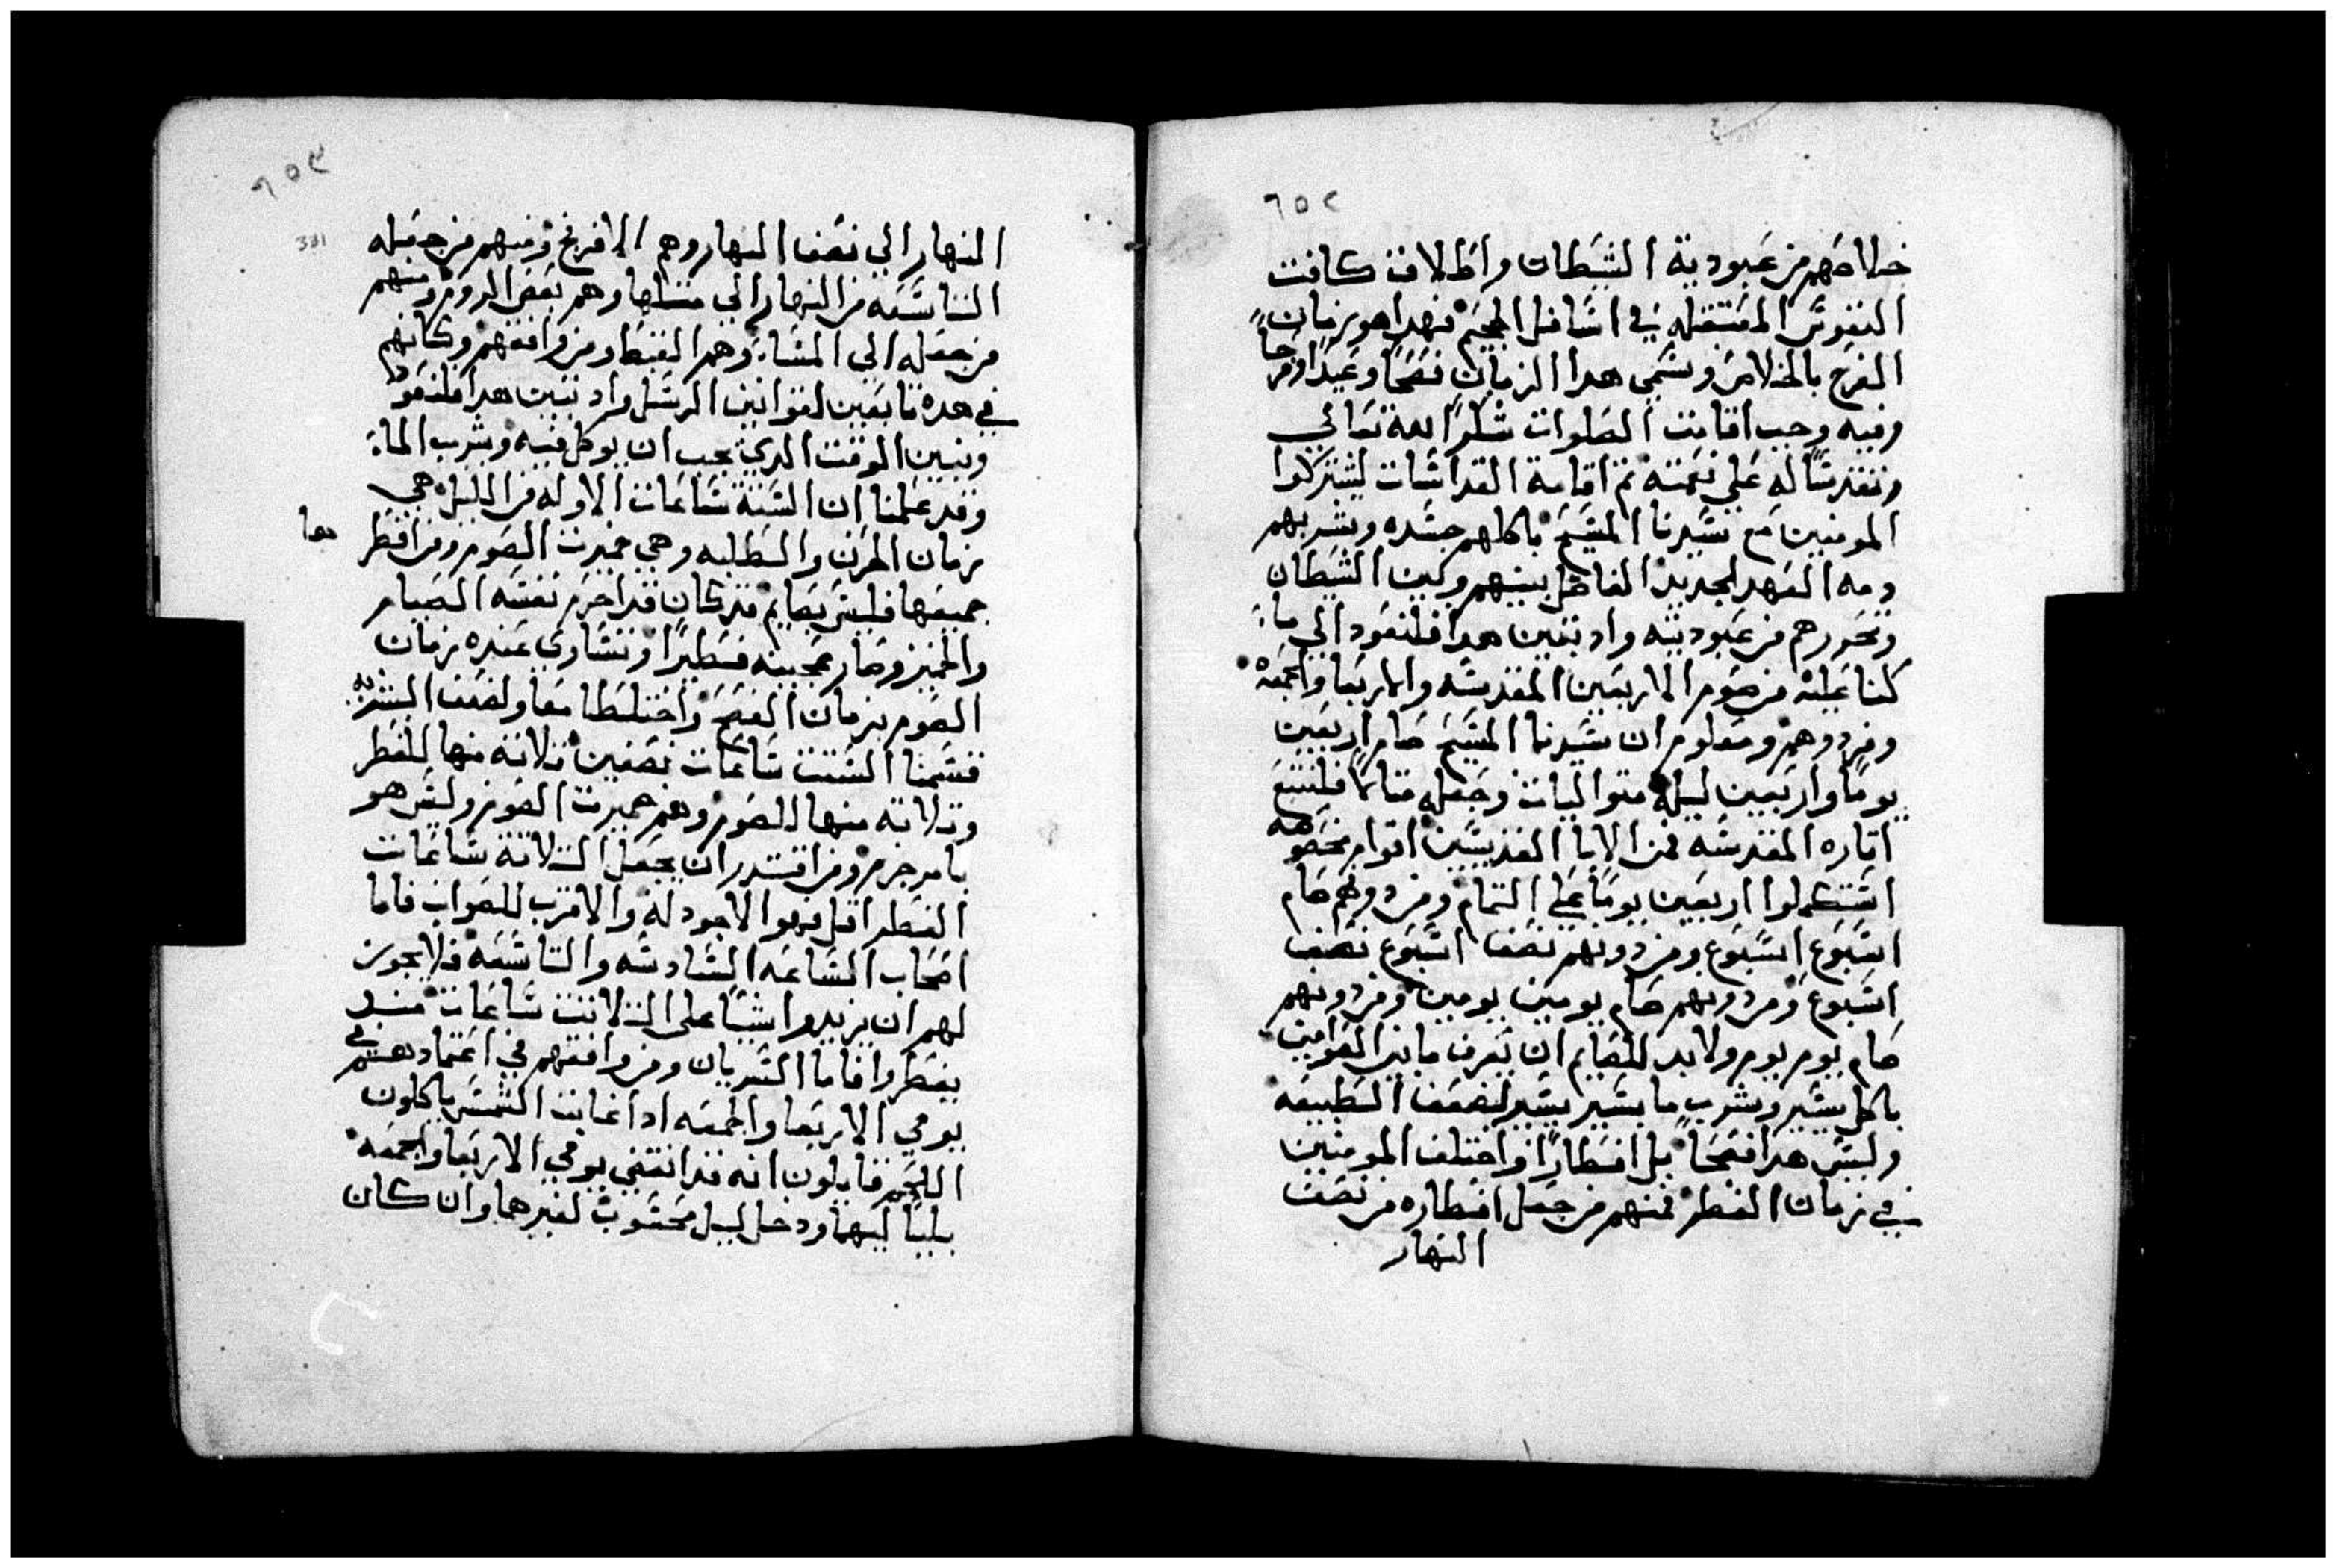 ٦٥٢
خلاصهم من عبودية الشيطان واطلاق كافت
النفوس المعتقله في اسافل الجحيم فهدا هو زمان
الفرح بالخلاص وسمي هدا الزمان فصحًا وعيدًا وفرحًا
وفيه وجب اقامت الصلوات شكرًا لله تعالي
وتقديسًا له علي نعمته تم اقامة القداسات ليشتركوا
المومنين مع سيدنا المسيح باكلهم جسده وشربهم
دمه العهد الجديد الفاصل بينهم وبين الشيطان
وتحررهم من عبوديته واد تبين هدا فلنعود الي ما
كنا عليه من صوم الاربعين المقدسه والاربعا والجمعه
ومعلوم ان سيدنا المسيح صام اربعين
يومًا واربعين ليله متواليات وجعله متالًا فلنتبع
اتاره المقدسه فمن الابا القديسين اقوام
استكملوا اربعين يومًا علي التمام ومن دونهم صام
اسبوع اسبوع ومن دونهم نصف اسبوع نصف
اسبوع ومن دونهم صام يومين يومين ومن دونهم
صام يوم يوم ولابد للصايم ان يعرف ما بين الصومين
باكل يسير وشرب ما يسير يسير لضعف الطبيعه
وليس هدا فصحًا بل افطارًا واختلف المومنين
في زمان الفطر فمنهم من جعل افطاره من نصف
النهار
٦٥٣
331
النهار الي نصف النهار وهم الافرنج ومنهم من جعله
التاسعه من النهار الي متلها وهم بعض الروم ومنهم
من جعله الي المسا وهم القبط ومن وافقهم وكانهم
في هده تابعين لقوانين الرسل واد تبين هدا فلنعود
ونبين الوقت الدي يجب ان يوكل فيه ويشرب الما
وقد علمنا ان الستة ساعات الاوله من الليل هي
زمان الحزن والطلبه وهي خميرت الصوم ومن افطر
جميعها فليس بصايم قد كان قد احرم نفسه الصيام
والخميز وصار عجينه فطيرًا وتساوي عنده زمان
الصوم بزمان الفصح واختلطا معًا ولضعف البشريه
قسمنا الستت ساعات نصفين تلاته منها للفطر
وتلاته منها للصوم وهم خميرت الصوم وليس هو
بامر جرم ومن اقتدر ان يجعل التلاتة ساعات
الفطر اقل فهو الاجود له والاقرب للصواب فاما
اصحاب الساعه السادسه والتاسعه فلا يجوز
لهم ان يزيدوا شيًا على التلاتت ساعات مند
يفطروا فاما السريان ومن وافقهم في اعتمادهم في
يومي الاربعا والجمعه ادا غابت الشمس ياكلون
اللحم قايلون انه قد انقضي يومي الاربعا والجمعه
بليًا ليهما ودخل ليل محسوب لغيرهما وان كان